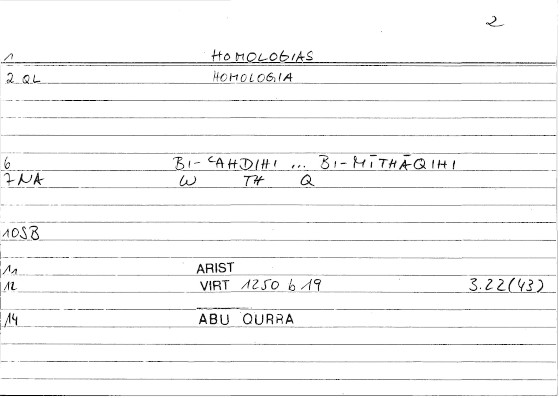 2
1 HOMOLOGIAS
2 QL HOMOLOGIA
6 BI-ʿAHDIHI ... BI-MĪTHĀQIHI
7 NA W TH Q
10 SB
11 ARIST
12 VIRT 1250 b 19 3.22(43)
14 ABU QURRA